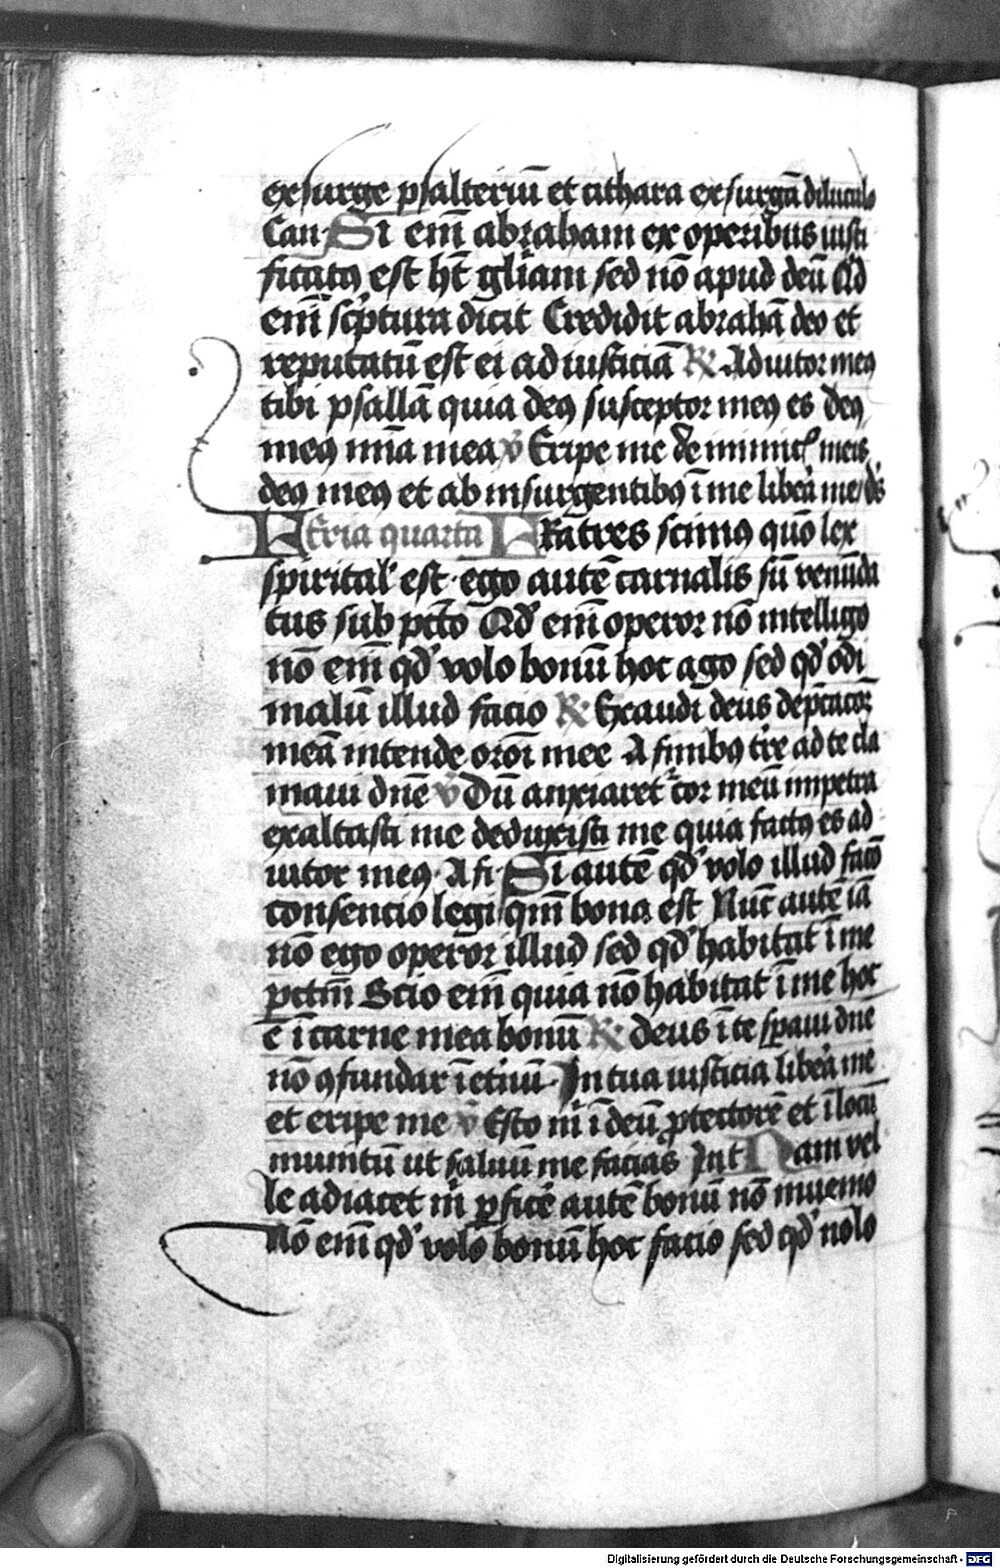 exsurge psalteriū et cithara exsurgā diluculo
Can· Si em̄ abraham ex operibus iusti
ficatꝰ est ht̄ gl̄iam sed nō apud deū Qd
em̄ sc̓ptura dicit Credidit abrahā deo et
reputatū est ei ad iusticiā ℟· Adiutor meꝰ
tibi psallā quia deꝰ susceptor meꝰ es deꝰ
meꝰ mīa mea ℣ Eripe me de inimic̓ meis
deꝰ meꝰ et ab insurgentibꝰ ī me libera me ds̓
FEria quarta FRatres scimꝰ quō lex
spirital̓ est · ego autē carnalis sū venūda
tus sub pctō Qd̓ em̄ operor nō intelligo
nō em̄ qd̓ volo bonū hoc ago sed qd̓ odi
malū illud facio ℟· Exaudi deus dep̄catōꝫ
meā intende orōi mee A finibꝰ tr̄e ad te cla
maui dn̄e ℣ Dū anxiaret̓ cor meū in petra
exaltasti me deduxisti me quia factꝰ es ad
iutor meꝰ · A fi· Si autē qd̓ volo illud faciō
consencio legi qm̄ bona est Nūc autē iā
nō ego operor illud sed qd̓ habitat ī me
pctm̄ Scio em̄ quia nō habitat ī me hoc
ē ī carne mea bonū ℟· deus ī te sꝑaui dn̄e
nō ꝯfundar īetn̄ū · In tua iusticia libera me
et eripe me ℣ Esto m̄ ī deū ꝓtectorē et ī locū
munitū ut saluū me facias Int Nam vel
le adiacet m̄ ꝑficē autē bonū nō inuenio
Nō em̄ qd̓ volo bonū hoc facio sed qd̓ nolo
Digitalisierung gefördert durch die Deutsche Forschungsgemeinschaft - DFG